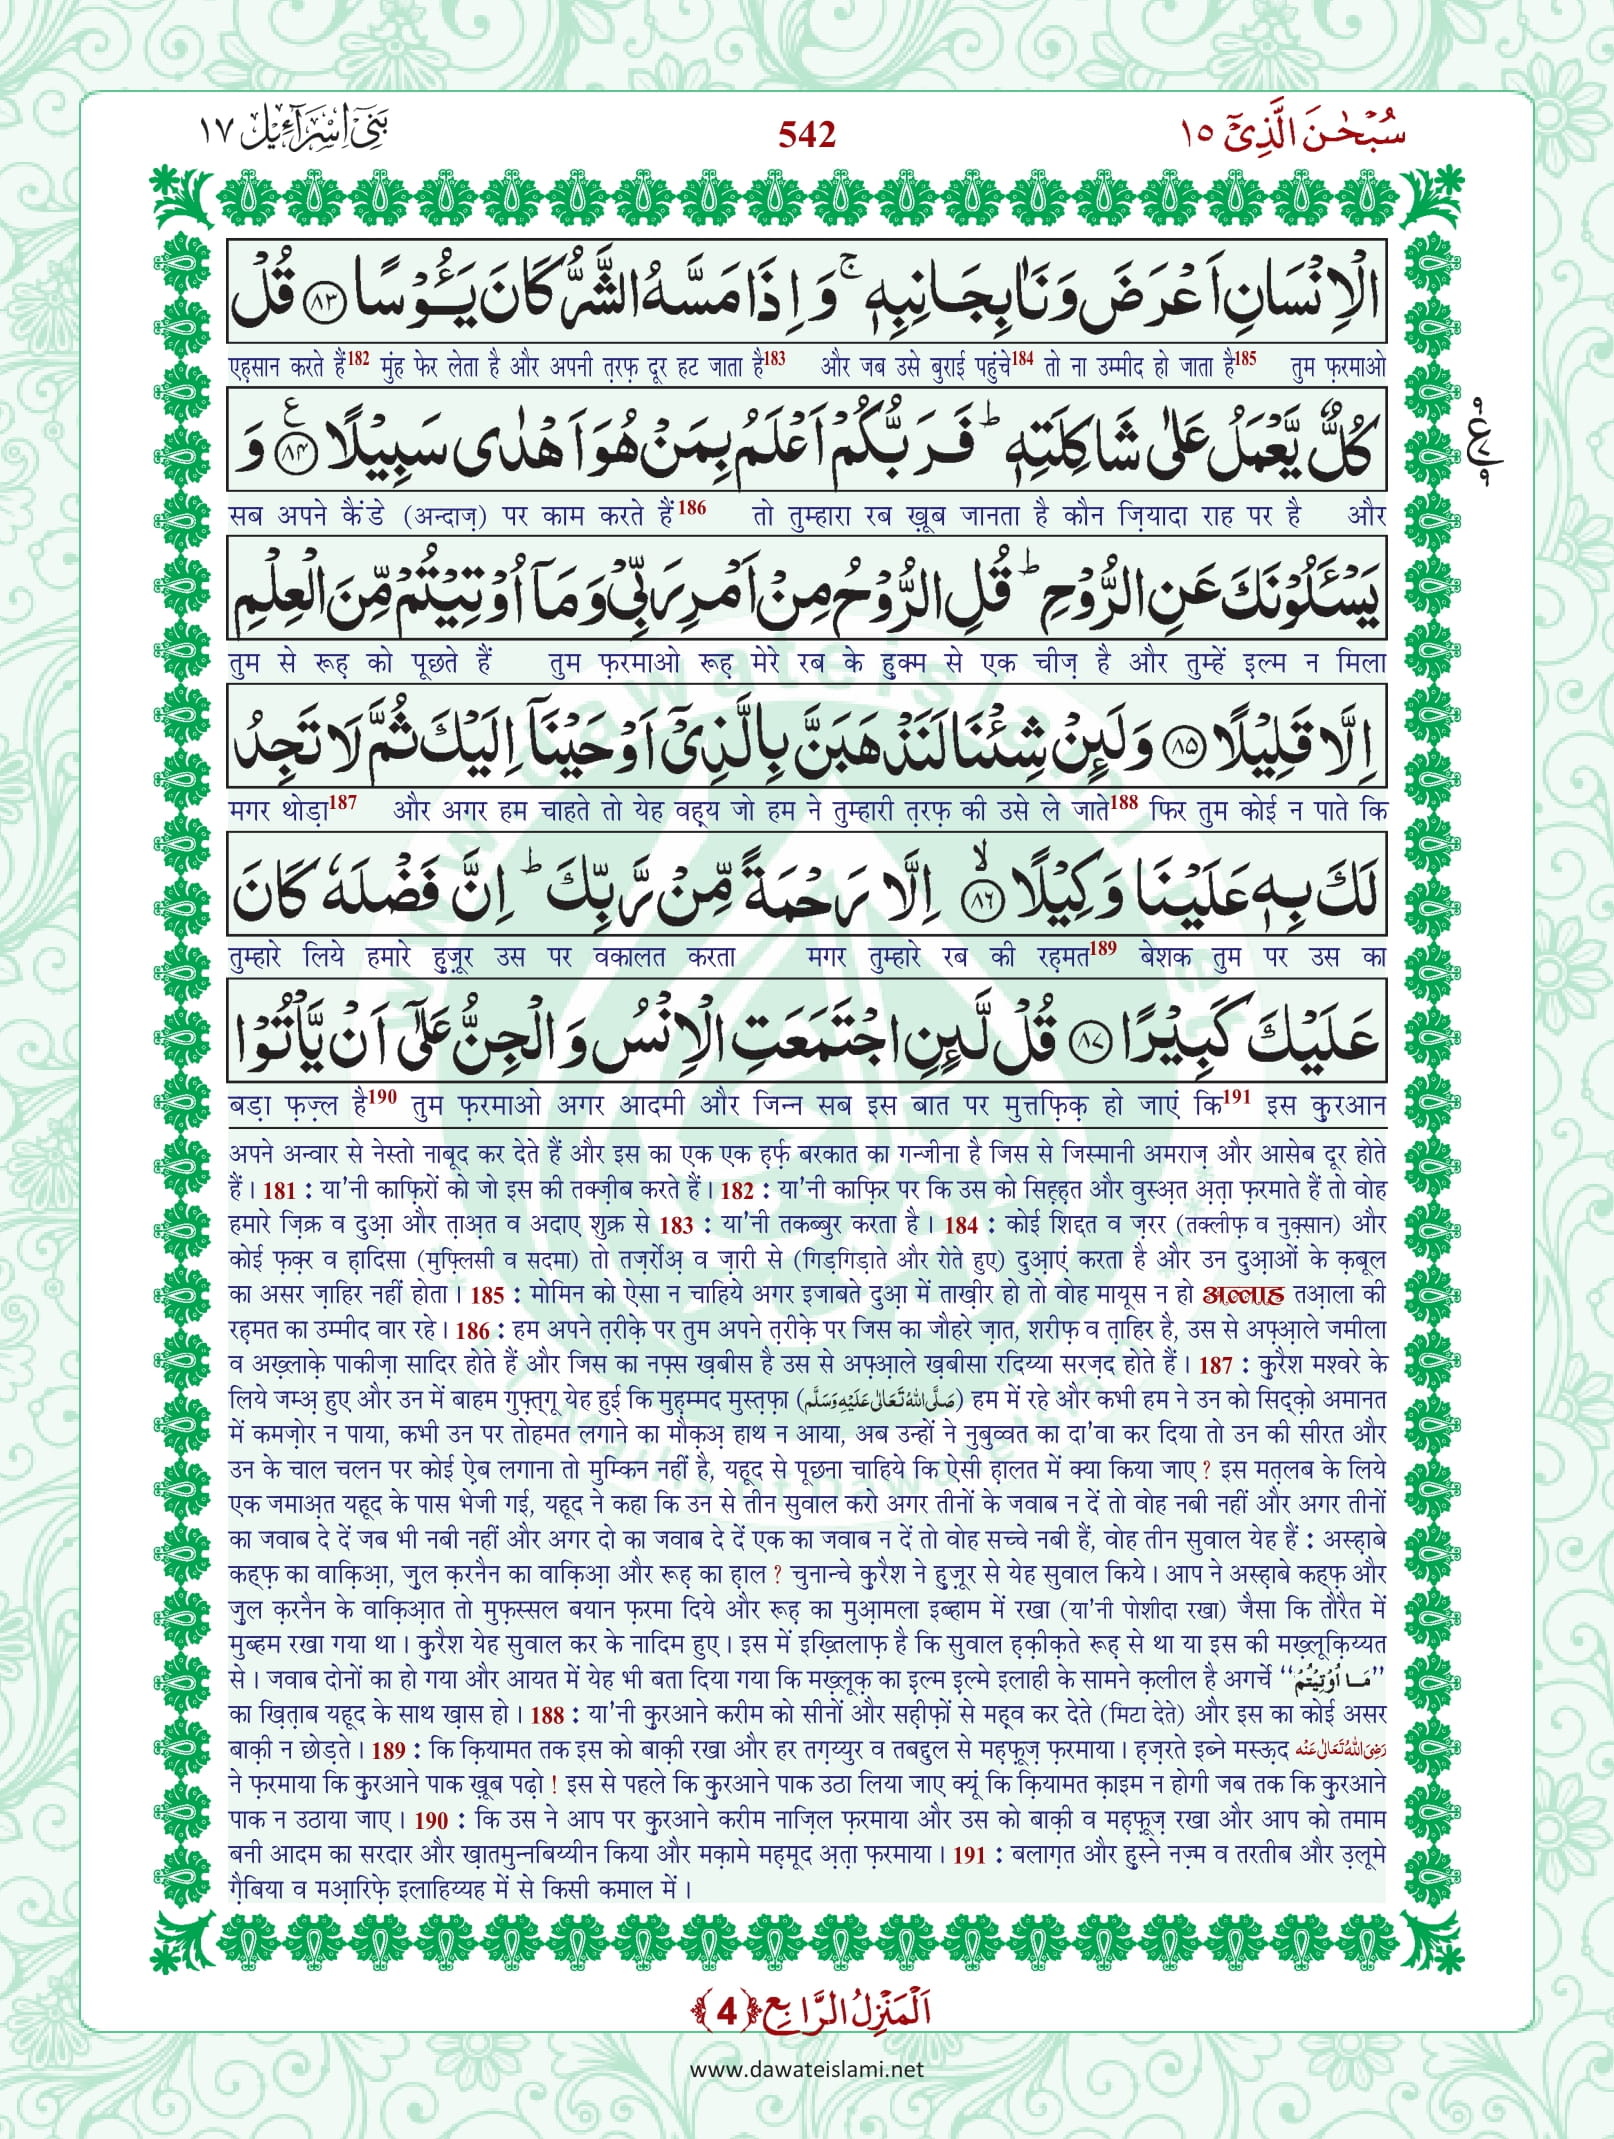 سُبْحٰنَ الَّذِیْۤ ١٥
542
بَنِیْۤ اِسْرَآءِیْل ١٧
الْاِنْسَانِ اَعْرَضَ وَنَاٰ بِجَانِبِهٖ ۚ وَ اِذَا مَسَّهُ الشَّرُّ كَانَ یَـُٔوْسًا ﴿۸۳﴾ قُلْ
एहसान करते हैं182 मुंह फेर लेता है और अपनी त़रफ़ दूर हट जाता है183 और जब उसे बुराई पहुंचे184 तो ना उम्मीद हो जाता है185 तुम फ़रमाओ
كُلٌّ یَّعْمَلُ عَلٰى شَاكِلَتِهٖ ؕ فَرَبُّكُمْ اَعْلَمُ بِمَنْ هُوَ اَهْدٰى سَبِیْلًا ﴿۸۴﴾ وَ
सब अपने कैंडे (अन्दाज़) पर काम करते हैं186 तो तुम्हारा रब ख़ूब जानता है कौन ज़ियादा राह पर है और
یَسْـَٔلُوْنَكَ عَنِ الرُّوْحِ ؕ قُلِ الرُّوْحُ مِنْ اَمْرِ رَبِّیْ وَ مَاۤ اُوْتِیْتُمْ مِّنَ الْعِلْمِ
तुम से रूह़ को पूछते हैं तुम फ़रमाओ रूह़ मेरे रब के हु़क्म से एक चीज़ है और तुम्हें इ़ल्म न मिला
اِلَّا قَلِیْلًا ﴿۸۵﴾ وَ لَىِٕنْ شِئْنَا لَنَذْهَبَنَّ بِالَّذِیْۤ اَوْحَیْنَاۤ اِلَیْكَ ثُمَّ لَا تَجِدُ
मगर थोड़ा187 और अगर हम चाहते तो येह वह़्य जो हम ने तुम्हारी त़रफ़ की उसे ले जाते188 फिर तुम कोई न पाते कि
لَكَ بِهٖ عَلَیْنَا وَكِیْلًا ﴿۸۶﴾ ۙ اِلَّا رَحْمَةً مِّنْ رَّبِّكَ ؕ اِنَّ فَضْلَهٗ كَانَ
तुम्हारे लिये हमारे हु़ज़ूर उस पर वकालत करता मगर तुम्हारे रब की रह़मत189 बेशक तुम पर उस का
عَلَیْكَ كَبِیْرًا ﴿۸۷﴾ قُلْ لَّىِٕنِ اجْتَمَعَتِ الْاِنْسُ وَ الْجِنُّ عَلٰۤى اَنْ یَّاْتُوْا
बड़ा फ़ज़्ल है190 तुम फ़रमाओ अगर आदमी और जिन्न सब इस बात पर मुत्तफ़िक़ हो जाएं कि191 इस क़ुरआन
अपने अन्वार से नेस्तो नाबूद कर देते हैं और इस का एक एक ह़र्फ़ बरकात का गन्जीना है जिस से जिस्मानी अमराज़ और आसेब दूर होते
हैं। 181 : या'नी काफ़िरों को जो इस की तक्ज़ीब करते हैं। 182 : या'नी काफ़िर पर कि उस को सिह़्ह़त और वुस्अ़त अ़त़ा फ़रमाते हैं तो वोह
हमारे ज़िक्र व दुआ़ और त़ाअ़त व अदाए शुक्र से 183 : या'नी तकब्बुर करता है। 184 : कोई शिद्दत व ज़रर (तक्लीफ़ व नुक़्सान) और
कोई फ़क़्र व ह़ादिसा (मुफ़्लिसी व सदमा) तो तज़र्रोअ़ व ज़ारी से (गिड़गिड़ाते और रोते हुए) दुआ़एं करता है और उन दुआ़ओं के क़बूल
का असर ज़ाहिर नहीं होता। 185 : मोमिन को ऐसा न चाहिये अगर इजाबते दुआ़ में ताख़ीर हो तो वोह मायूस न हो अल्लाह तआ़ला की
रह़मत का उम्मीद वार रहे। 186 : हम अपने त़रीक़े पर तुम अपने त़रीक़े पर जिस का जौहरे ज़ात, शरीफ़ व त़ाहिर है, उस से अफ़्आ़ले जमीला
व अख़्लाक़े पाकीज़ा सादिर होते हैं और जिस का नफ़्स ख़बीस है उस से अफ़्आ़ले ख़बीसा रदिय्या सरज़द होते हैं। 187 : क़ुरैश मश्वरे के
लिये जम्अ़ हुए और उन में बाहम गुफ़्त्गू येह हुई कि मुह़म्मद मुस्त़फ़ा (صَلَّى اللّٰهُ تَعَالٰى عَلَيْهِ وَسَلَّم) हम में रहे और कभी हम ने उन को सिद्क़ो अमानत
में कमज़ोर न पाया, कभी उन पर तोहमत लगाने का मौक़अ़ हाथ न आया, अब उन्हों ने नुबुव्वत का दा'वा कर दिया तो उन की सीरत और
उन के चाल चलन पर कोई ऐ़ब लगाना तो मुम्किन नहीं है, यहूद से पूछना चाहिये कि ऐसी ह़ालत में क्या किया जाए? इस मत़लब के लिये
एक जमाअ़त यहूद के पास भेजी गई, यहूद ने कहा कि उन से तीन सुवाल करो अगर तीनों के जवाब न दें तो वोह नबी नहीं और अगर तीनों
का जवाब दे दें जब भी नबी नहीं और अगर दो का जवाब दे दें एक का जवाब न दें तो वोह सच्चे नबी हैं, वोह तीन सुवाल येह हैं : अस्ह़ाबे
कह्फ़ का वाक़िआ़, ज़ुल क़रनैन का वाक़िआ़ और रूह़ का ह़ाल? चुनान्चे क़ुरैश ने हु़ज़ूर से येह सुवाल किये। आप ने अस्ह़ाबे कह्फ़ और
ज़ुल क़रनैन के वाक़िआ़त तो मुफ़स्सल बयान फ़रमा दिये और रूह़ का मुआ़मला इब्हाम में रखा (या'नी पोशीदा रखा) जैसा कि तौरैत में
मुब्हम रखा गया था। क़ुरैश येह सुवाल कर के नादिम हुए। इस में इख़्तिलाफ़ है कि सुवाल ह़क़ीक़ते रूह़ से था या इस की मख़्लूक़िय्यत
से। जवाब दोनों का हो गया और आयत में येह भी बता दिया गया कि मख़्लूक़ का इ़ल्म इ़ल्मे इलाही के सामने क़लील है अगर्चे "مَا اُوْتِيْتُمْ"
का ख़ित़ाब यहूद के साथ ख़ास हो। 188 : या'नी क़ुरआने करीम को सीनों और सह़ीफ़ों से मह़्व कर देते (मिटा देते) और इस का कोई असर
बाक़ी न छोड़ते। 189 : कि क़ियामत तक इस को बाक़ी रखा और हर तग़य्युर व तबद्दुल से मह़फ़ूज़ फ़रमाया। ह़ज़रते इब्ने मस्ऊ़द رَضِىَ اللّٰهُ تَعَالٰى عَنْه
ने फ़रमाया कि क़ुरआने पाक ख़ूब पढ़ो! इस से पहले कि क़ुरआने पाक उठा लिया जाए क्यूं कि क़ियामत क़ाइम न होगी जब तक कि क़ुरआने
पाक न उठाया जाए। 190 : कि उस ने आप पर क़ुरआने करीम नाज़िल फ़रमाया और उस को बाक़ी व मह़फ़ूज़ रखा और आप को तमाम
बनी आदम का सरदार और ख़ातमुन्नबिय्यीन किया और मक़ामे मह़मूद अ़त़ा फ़रमाया। 191 : बलाग़त और हु़स्ने नज़्म व तरतीब और उ़लूमे
ग़ैबिया व मआ़रिफ़े इलाहिय्यह में से किसी कमाल में।
اَلْمَنْزِلُ الرَّابِع ﴿4﴾
www.dawateislami.net